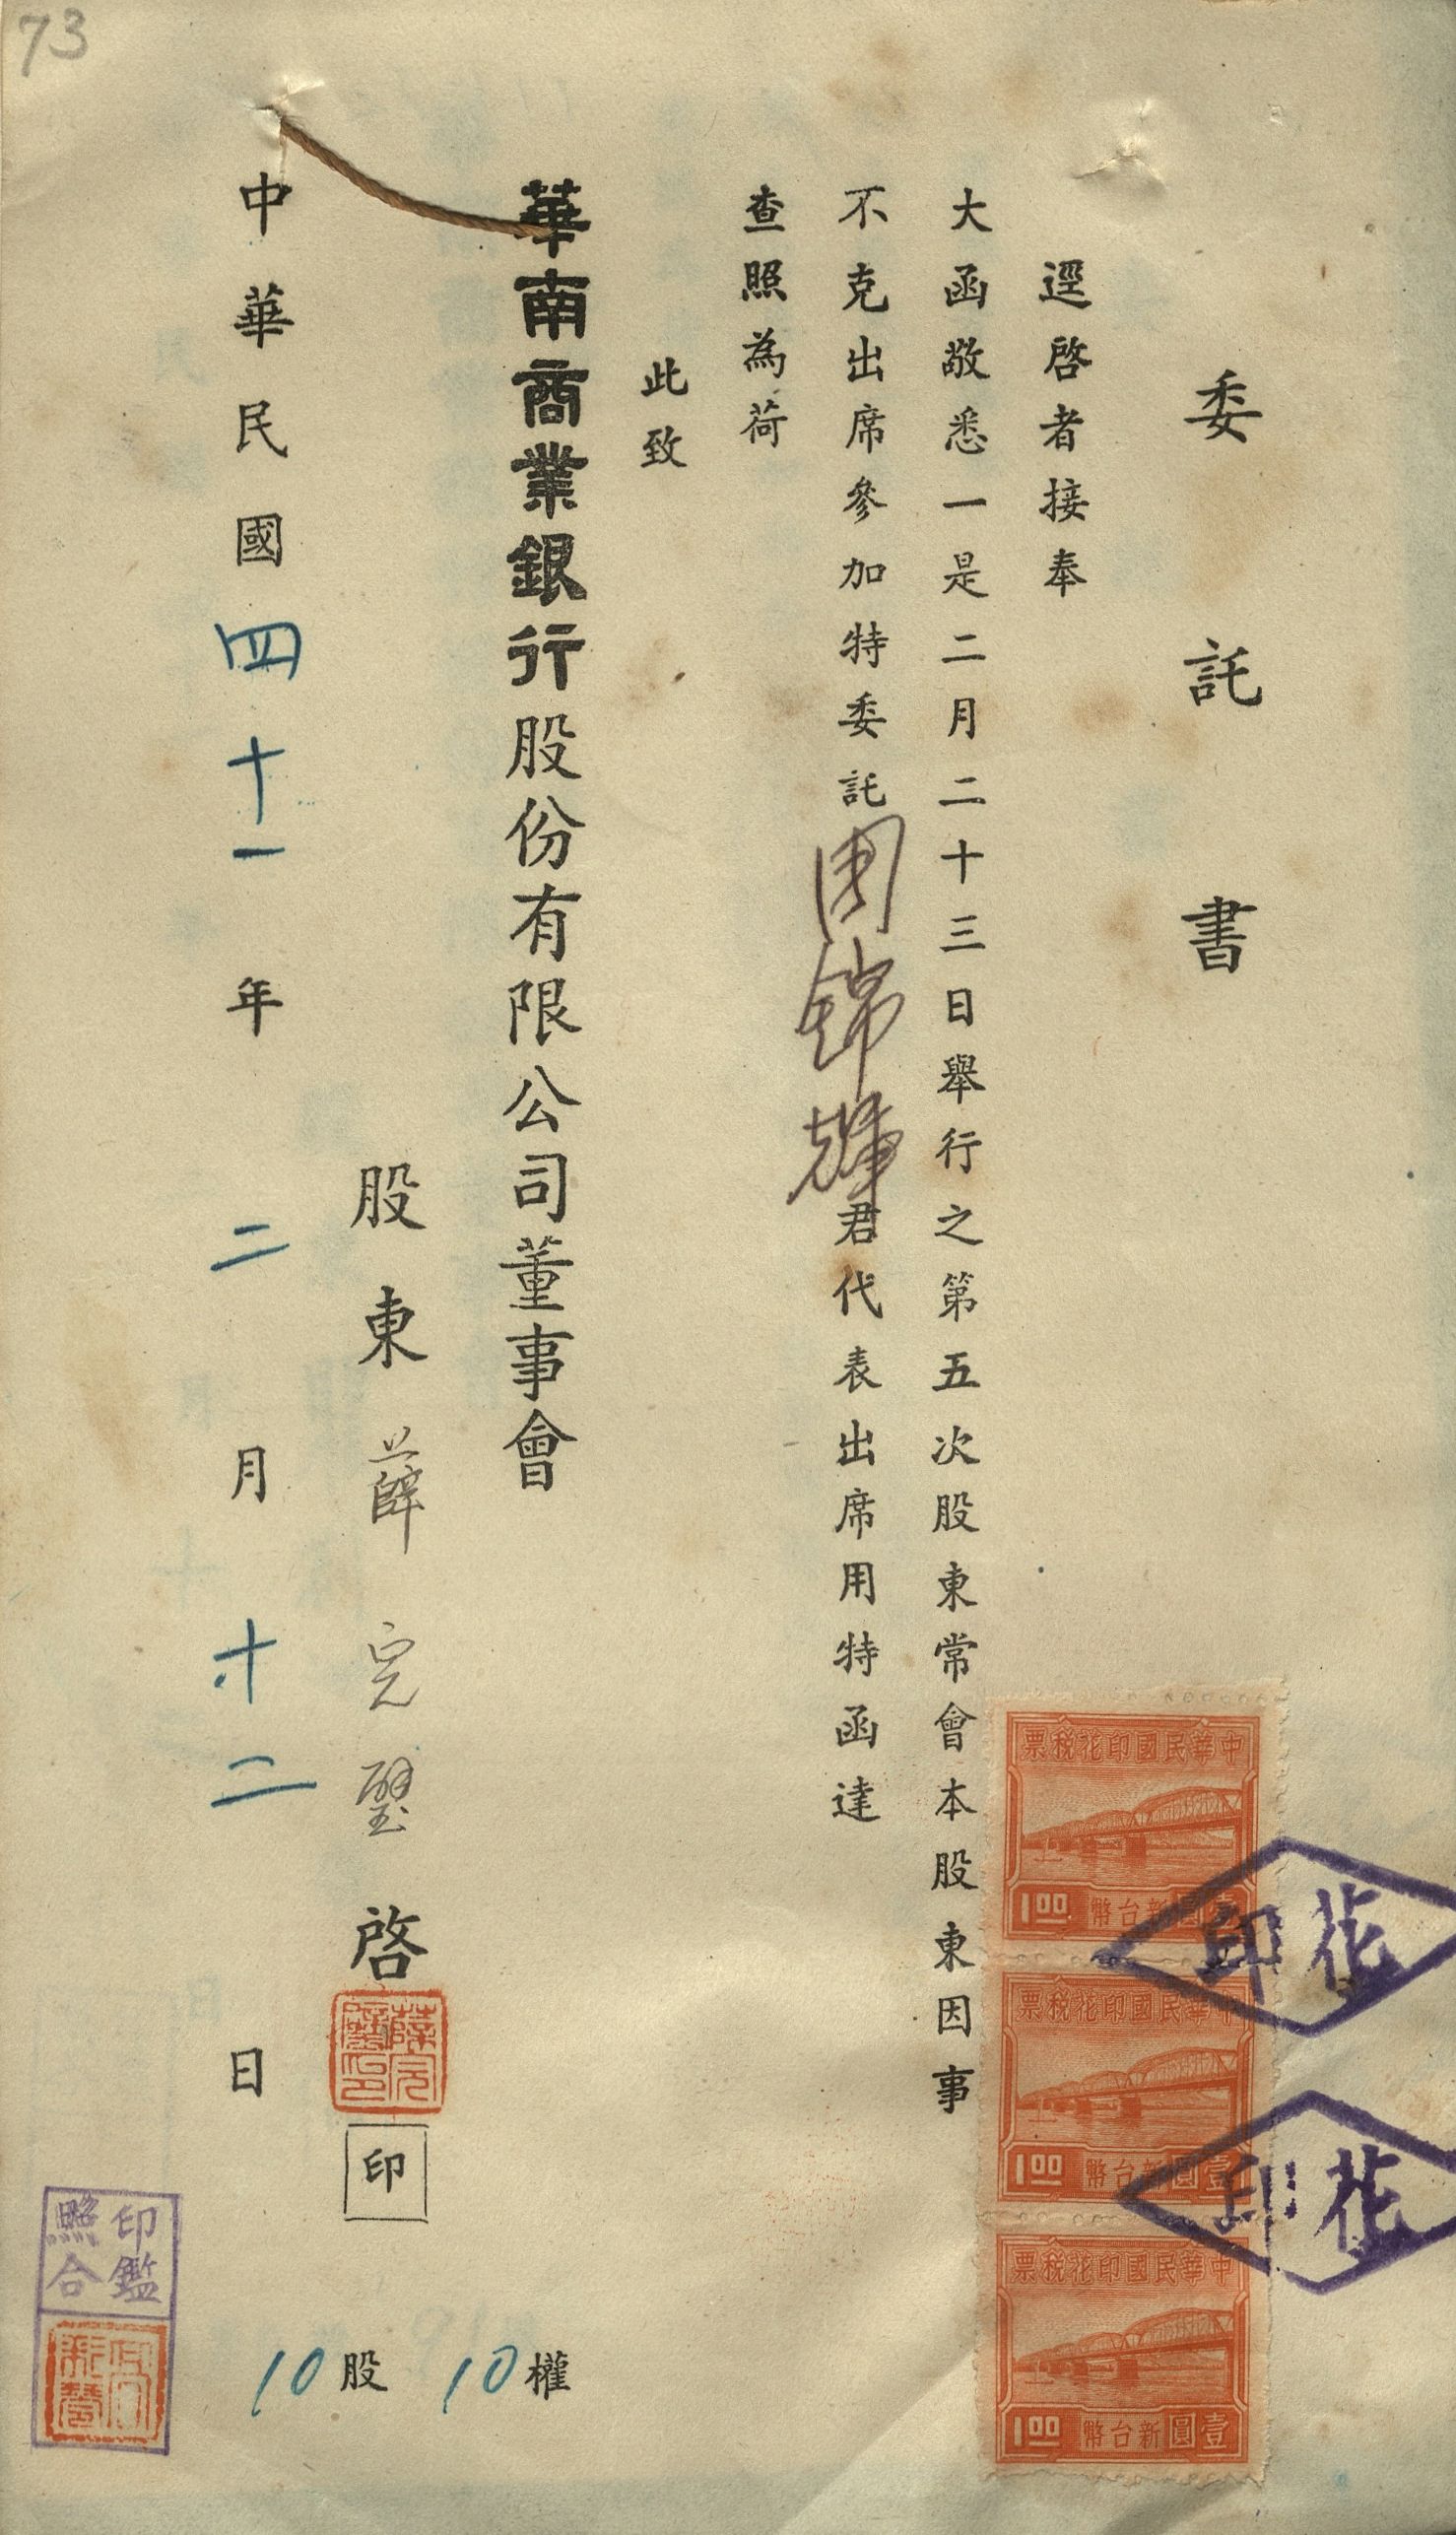 73
委託書
逕啓者接奉
大函敬悉一是二月二十三日舉行之第五次股東常會本股東因事
不克出席參加特委託周錦輝君代表出席用特函達
查照為荷
此致
華南商業銀行股份有限公司董事會
股東薛完璧啓
薛完璧印
印
中華民國四十一年二月十二日
10股 10權
印鑑照合
中華民國印花稅票
1.00 新台幣壹圓
中華民國印花稅票
1.00 新台幣壹圓
中華民國印花稅票
1.00 新台幣壹圓
花印
花印